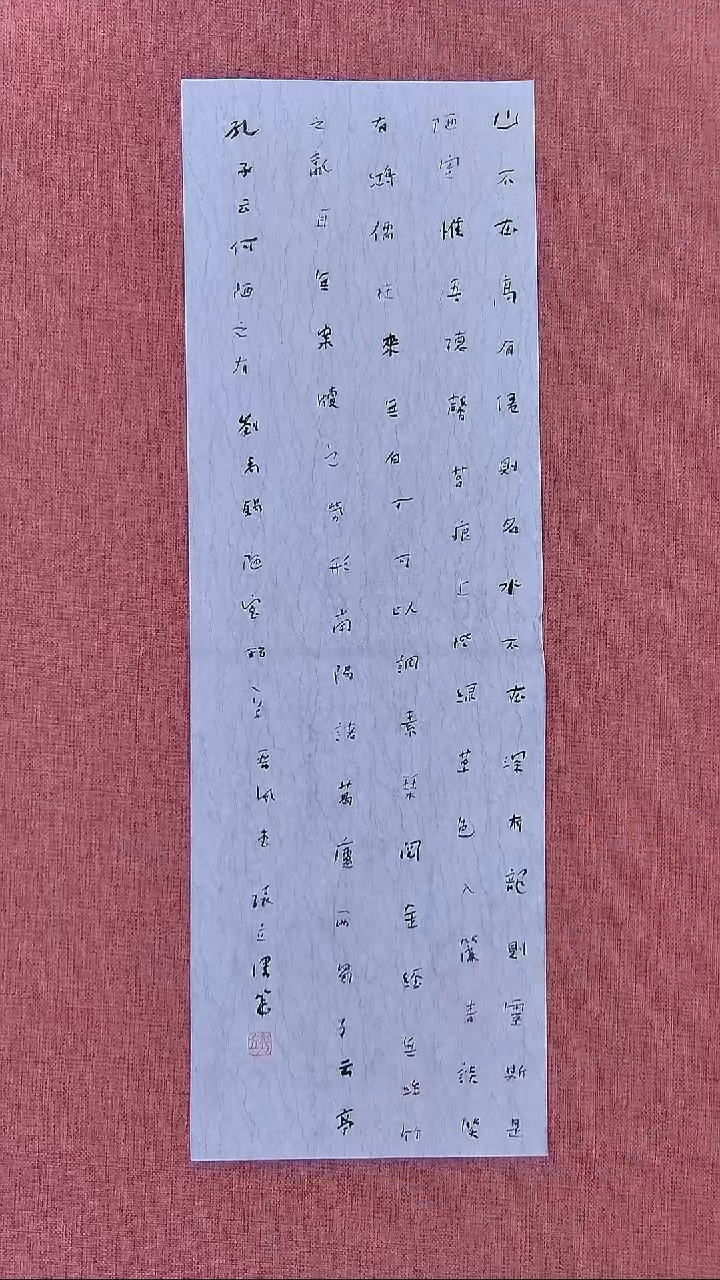 山不在高有僊則名水不在深有龍則靈斯是
陋室惟吾德馨苔痕上階緑草色入簾青談笑
有鴻儒往來無白丁可以調素琴閲金經無絲竹
之亂耳無案牘之勞形南陽諸葛廬西蜀子云亭
孔子云何陋之有 劉禹錫陋室銘